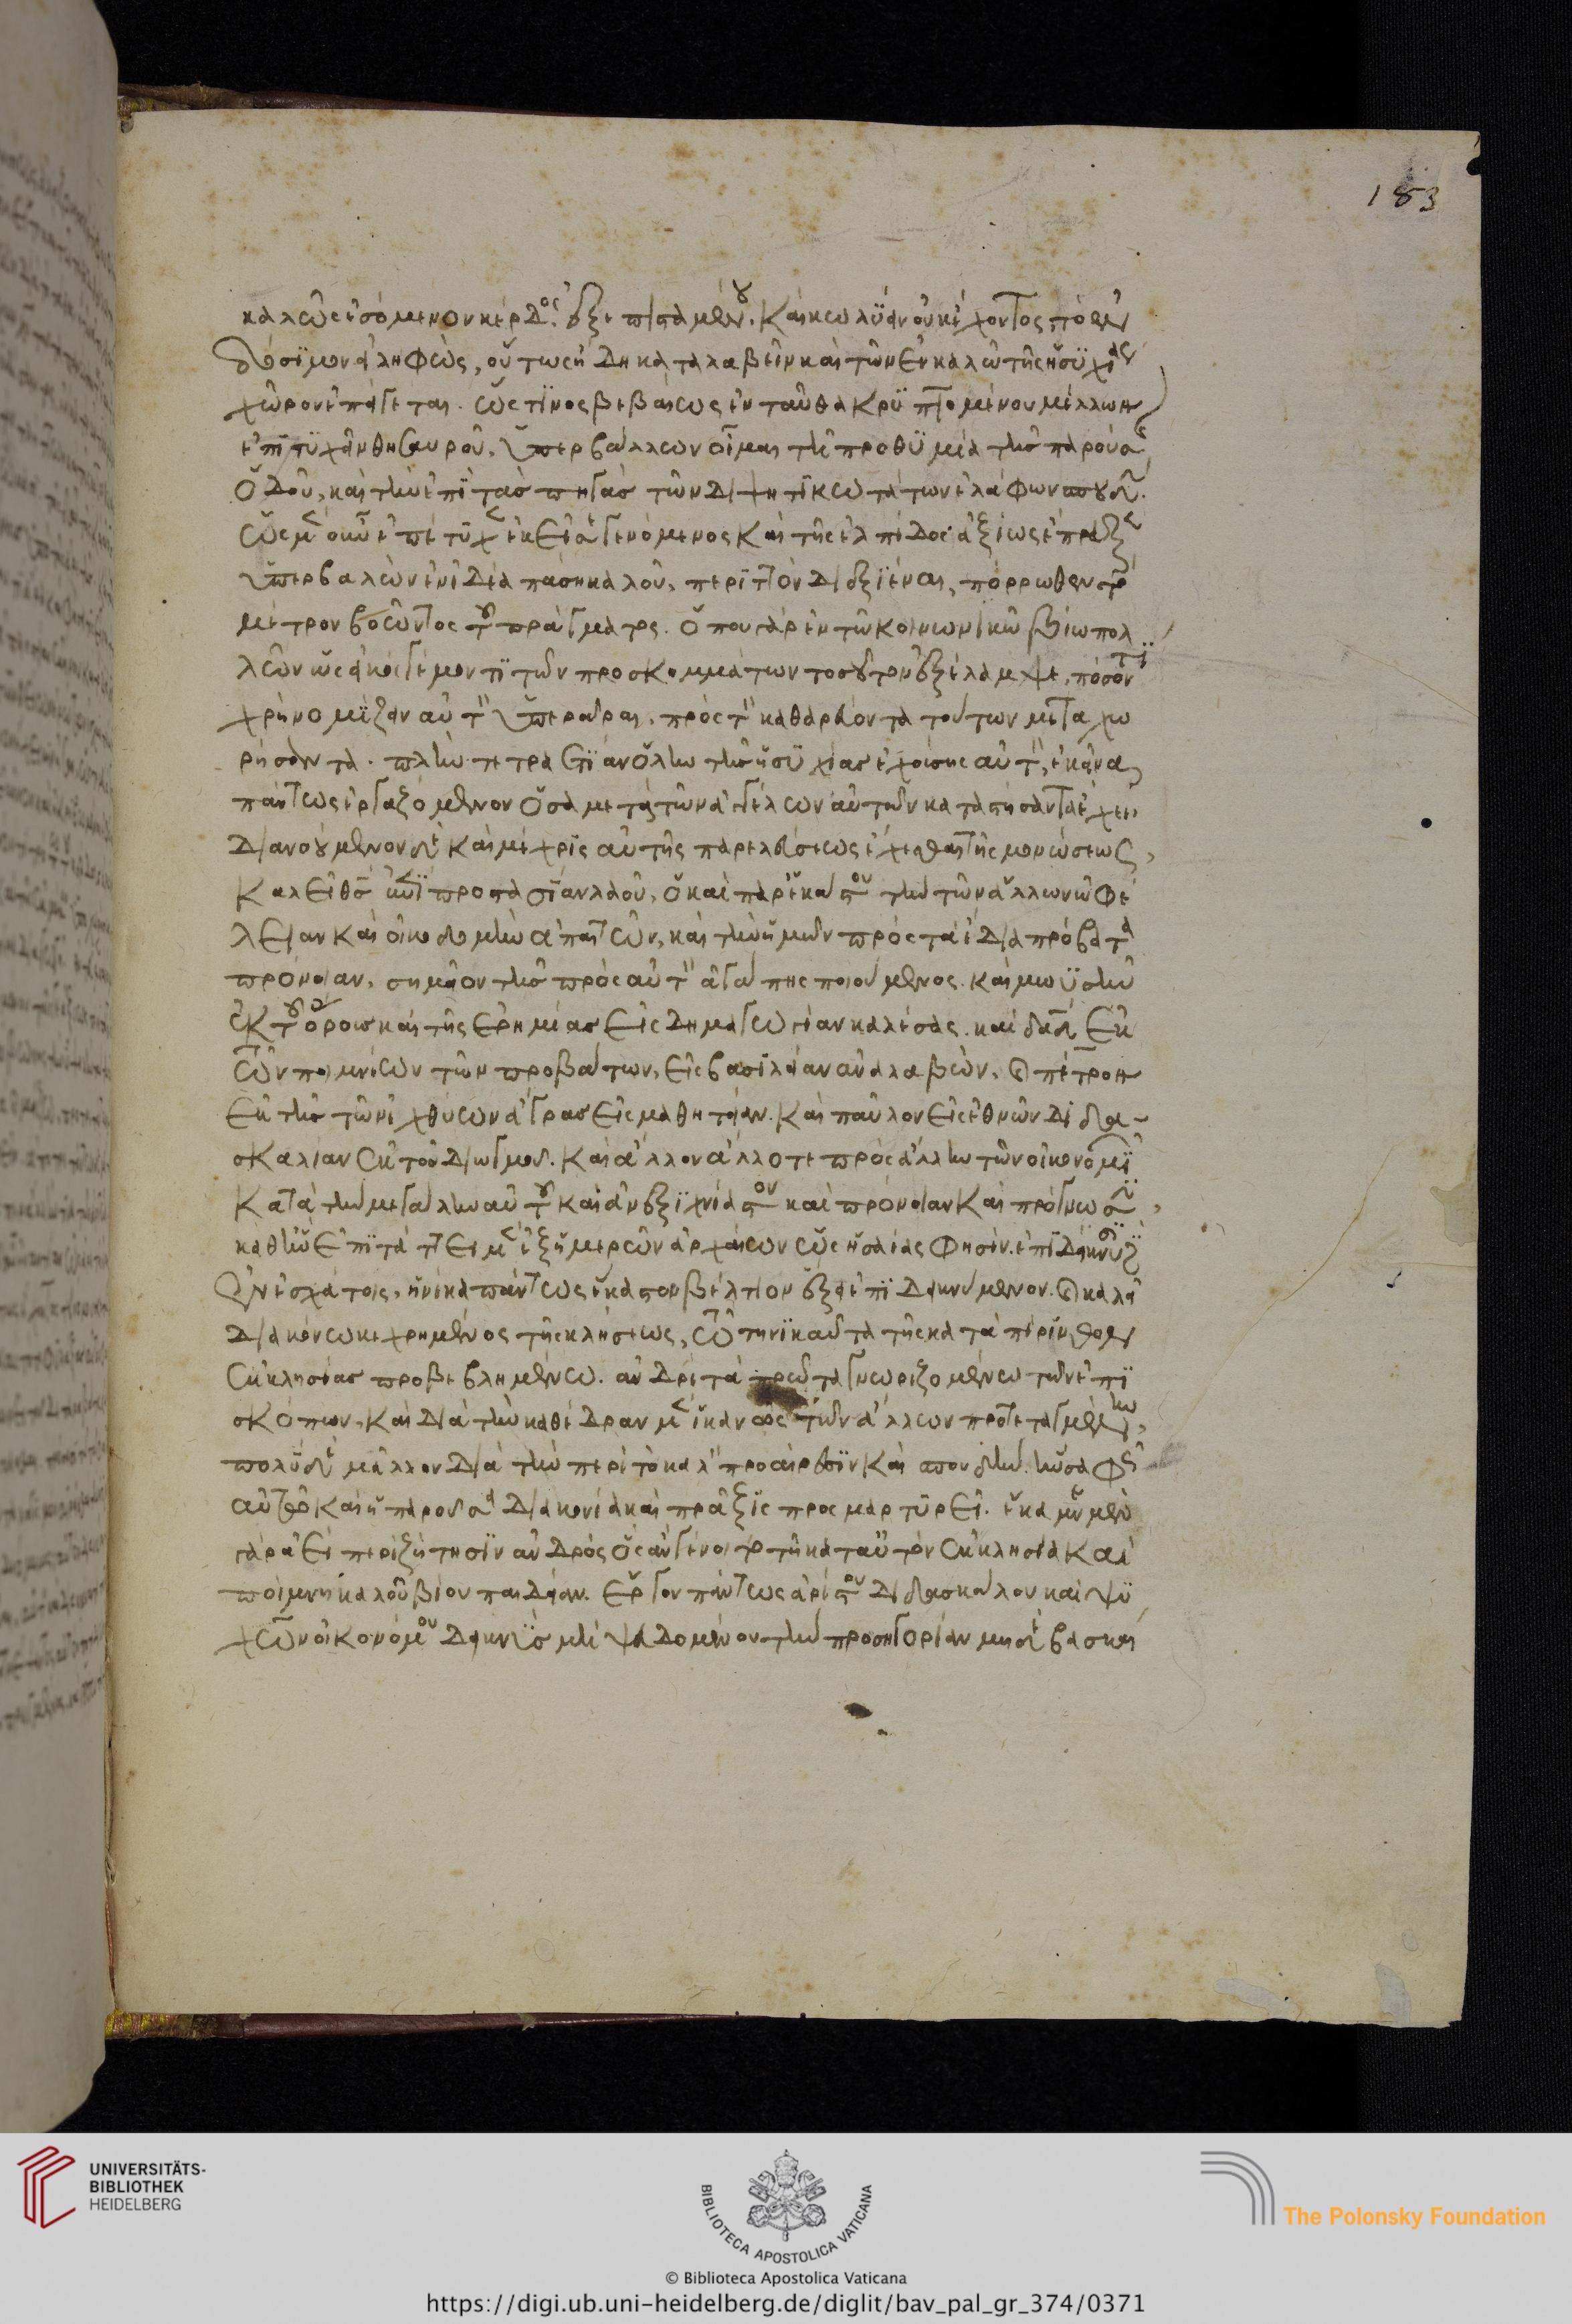 183
καλῶς ἐσόμενον κέρδος ἐξεπιστάμενου. καὶ κωλύαν οὐκ ἔχοντος πόθεν
οὕτως ἤδη καταλαβεῖν καὶ τῶν ἐν καλῶ τῆς ἡσυχίας
χῶρον ἐπείγεται. ὥς τινος βεβαίως ἐνταῦθα κρυπτομένου μέλλων
ἐπιτυχεῖν θησαυροῦ. ὑπερβάλλων οἶμαι τῆ προθυμία τῆς παρούσης
ὁδοῦ, καὶ τὴν ἐπὶ τὰς πηγὰς τῶν διψητικωτάτων ἐλάφων σπουδήν.
ἐκεῖσε γενόμενος καὶ τῆς ἐλπίδος ἀξίως ἔπραξε
ὑπερβαλὼν ἰδέα πάση καλοῦ, περὶ τὸν πόρρωθεν
μέτρον βοῶντος τοῦ πράγματος. ὅπου γὰρ ἐν τῶ κοινωνικῶ βίω πολ
λῶν ὡς εἰκὸς γέμοντι τῶν προσκομμάτων τοσοῦτον ἐξέλαμψε, πόσον τι
χρῆν ὁμείζον αὐτὸν ὑπερᾶραι, πρὸς τὸν καθαρεύοντα τούτων μεταχω
ρήσαντα. πλὴν τετραετίαν ὅλην τῆς ἡσυχίας ἐχούσης αὐτὸν, ἐκεῖνα
πάντως ἐργαζόμενον ὅσα μετὰ τῶν ἀγγέλων αὐτὸν καταστήσαντα ἔχει
διανοούμενον δὲ καὶ μέχρις αὐτῆς παρελεύσεως ἔχεσθαι τῆς μονώσεως,
καλεῖ θεὸς προστασίαν λαοῦ, ὁ καὶ παρ' ἑκάστου τὴν τῶν ἄλλων ὠφέ
λειαν καὶ οἰκοδομὴν ἀπαιτῶν, καὶ τὴν ἡμῶν πρὸς τὰ ἴδια πρόβατα
πρόνοιαν, σημεῖον τῆς πρὸς αὐτὸν ἀγάπης ποιούμενος. καὶ μωϋσῆν
ἐκ τοῦ ὄρους καὶ τῆς ἐρημίας εἰς δημαγωγίαν καλέσας. καὶ δαδ ἐκ
τῶν ποιμνίων τῶν προβάτων, εἰς βασιλείαν ἀναλαβών. ὁ πέτρον
ἐκ τῆς τῶν ἰχθύων ἄγρας εἰς μαθητείαν. καὶ παῦλον εἰς ἐθνῶν διδα-
σκαλίαν ἐκ τοῦ διωγμοῦ. καὶ ἄλλον ἄλλοτε πρὸς ἄλλην τῶν οἰκονομι
κατὰ τὴν μεγάλην αὐτοῦ καὶ ἀνεξιχνίαστον καὶ πρόνοιαν καὶ πρόγνωσιν,
καθ' ἣν ἐπὶ τὰ ἐξ ἡμερῶν ἀρχαίων ὡς ἡσαΐας φησὶν. ἐπιδείκνυσι
ἐν ἐσχάτοις, ἡνίκα πάντως ἕκαστον βέλτιον ἐξ ἐπιδεικνύμενον. ὁ καλεῖ
διακόνω κεχρημένος τῆς κλήσεως, τῶ τηνικαῦτα τῆς κατὰ πέρινθον
ἐκκλησίας προβεβλημένω. ἀνδρὶ τὰ πρῶτα γνωριζομένω τῶν ἐπι
σκόπων, καὶ διὰ τὴν καθέδραν ἱκανῶς τῶν ἄλλων προτεταγμένω,
πολὺ δὲ μᾶλλον διὰ τὴν περὶ τὸ καλὸν προαίρεσιν καὶ σπουδὴν. ἣν σαφῶς
αὐτῶ καὶ ἡ παροῦσα διακονία καὶ πρᾶξις προσμαρτυρεῖ.
γὰρ ἀεὶ περιζήτησιν ἀνδρὸς ὃς ἂν γένοιτο τῆ κατ' αὐτὸν ἐκκλησία καὶ
ποίμνη καλοῦ βίου παιδείαν. ἔργον πάντως ἀρίστου διδασκάλου καὶ ψυ
χῶν οἰκονόμου δεικνὺς μὴ ψευδομένου τὴν προσηγορίαν μηδὲ βασκαι
UNIVERSITÄTS-
BIBLIOTHEK
HEIDELBERG
BIBLIOTECA APOSTOLICA VATICANA
The Polonsky Foundation
© Biblioteca Apostolica Vaticana
https://digi.ub.uni-heidelberg.de/diglit/bav_pal_gr_374/0371